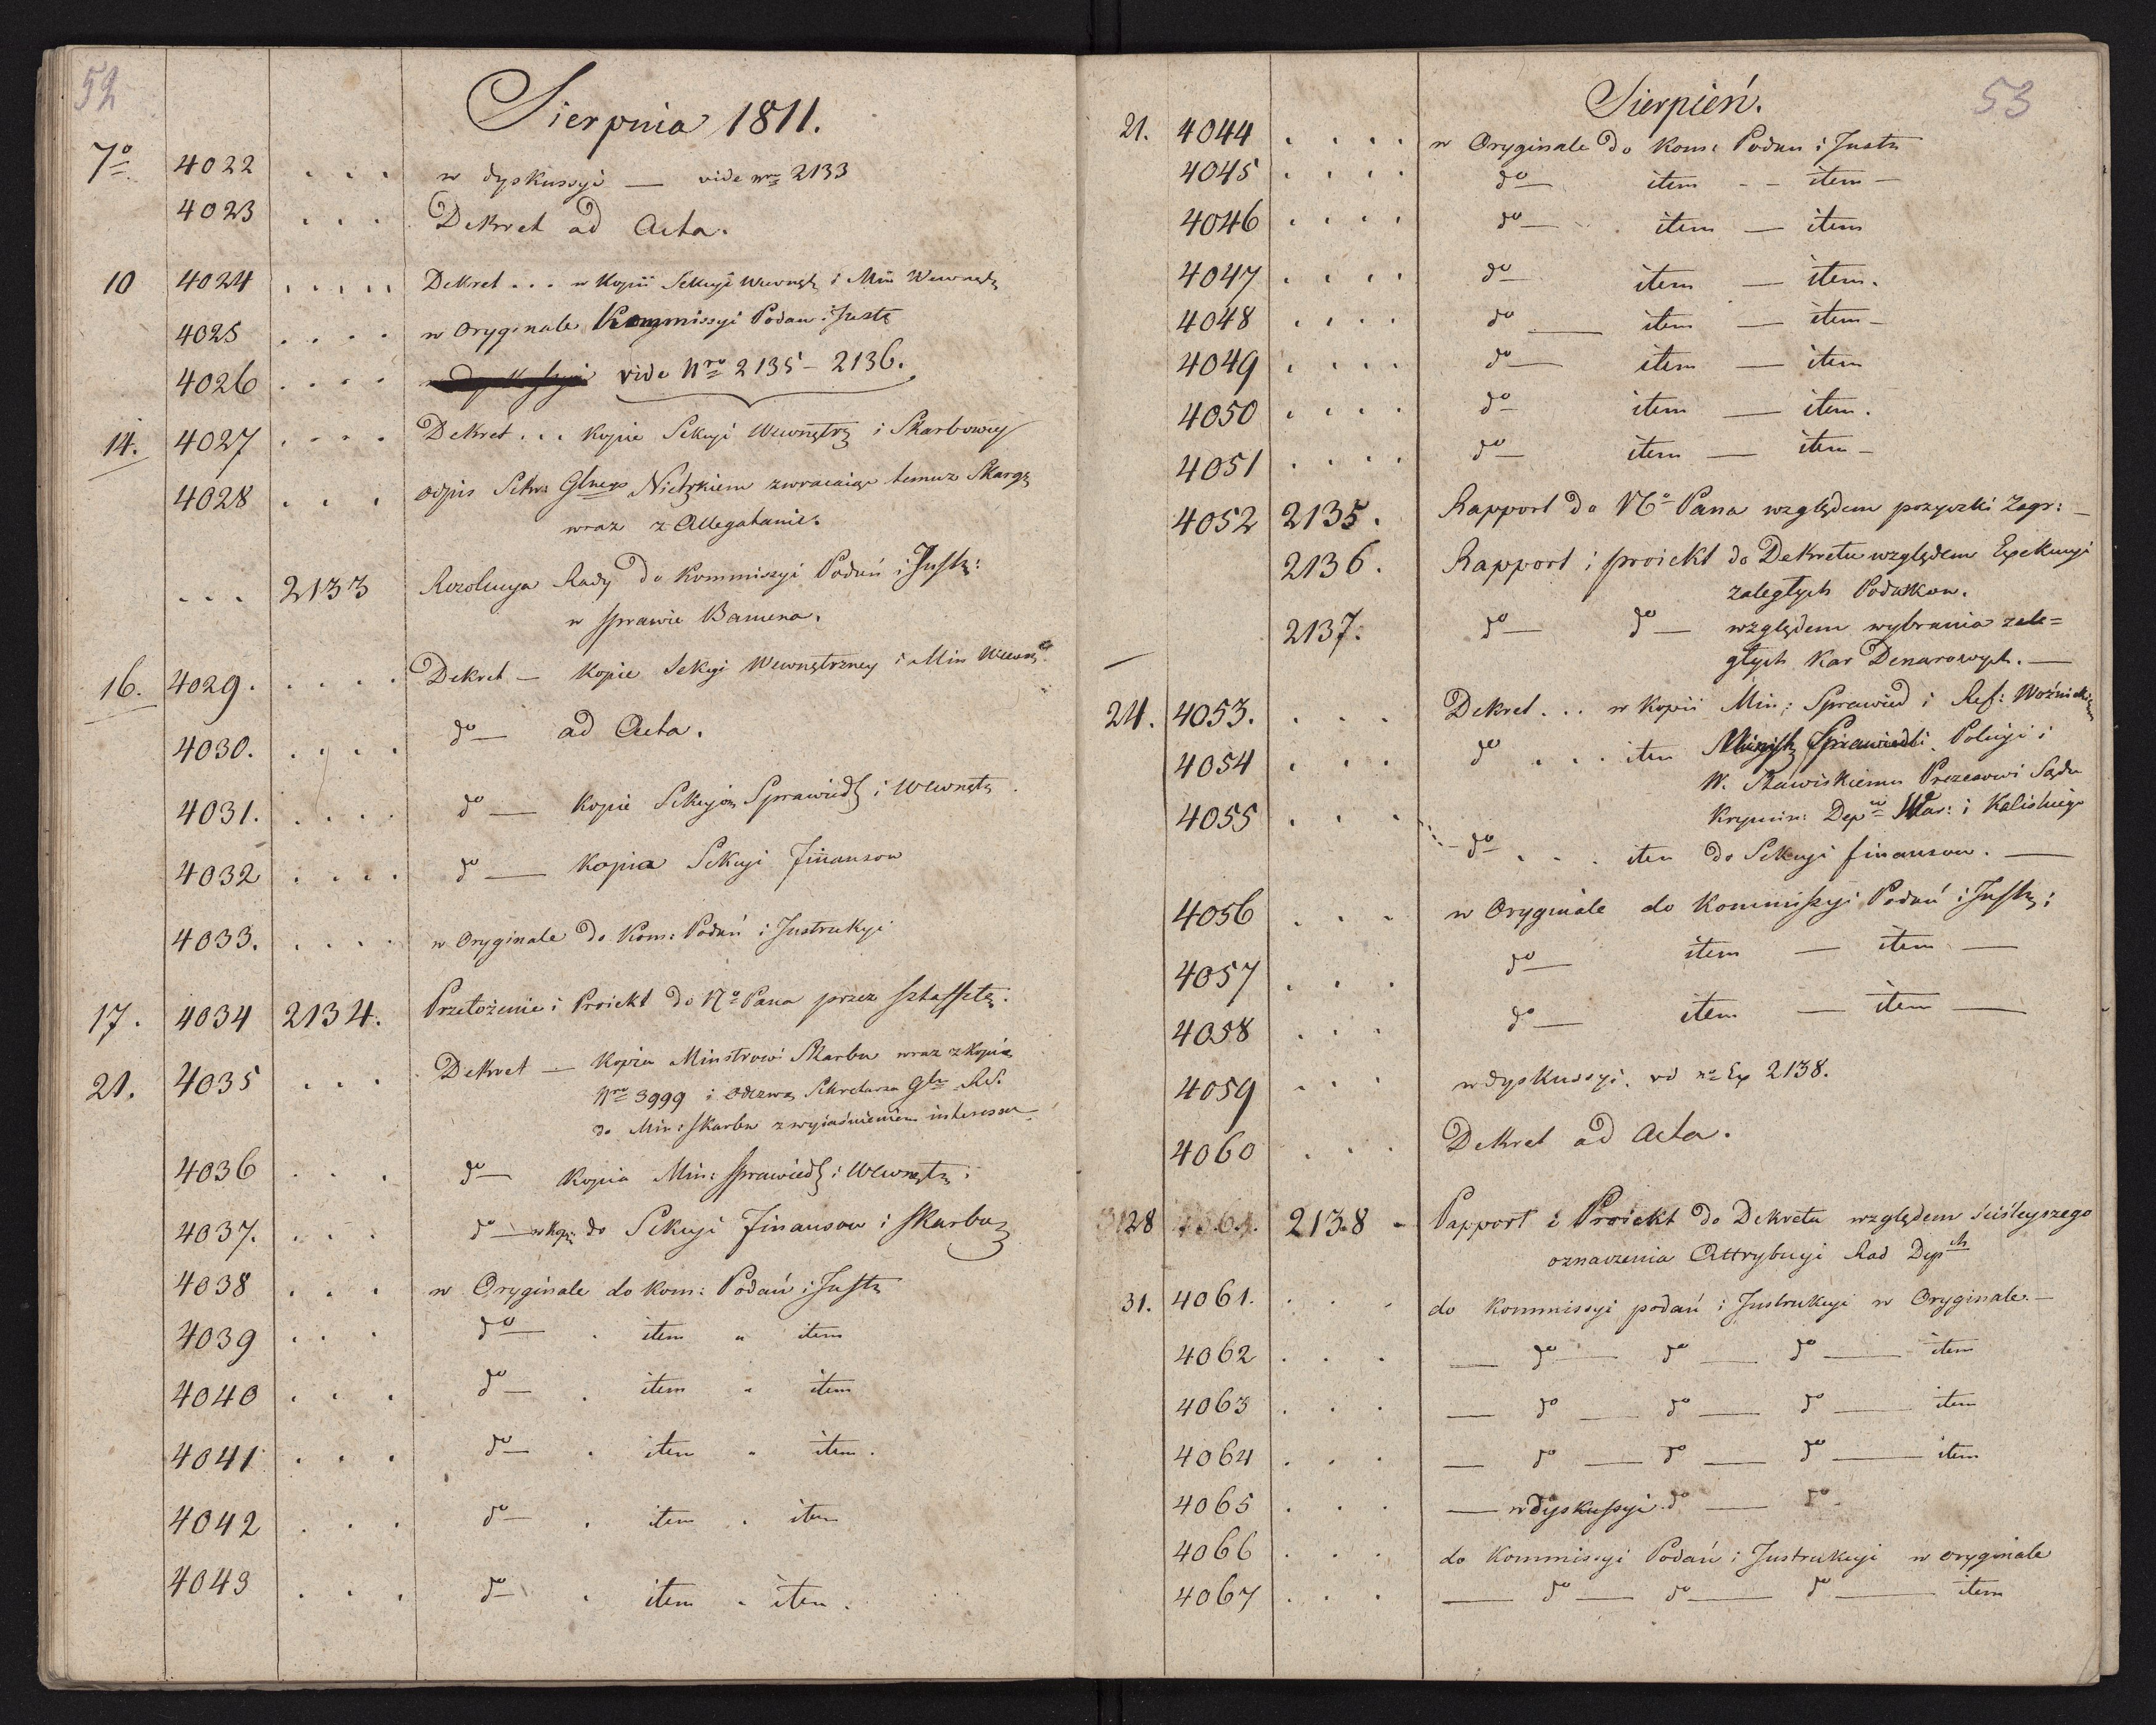 52
Sierpnia 1811.
7o 4022 . . . w dyskussyi — vide nro 2133
4023 . . . Dekret ad Acta.
10 4024 . . . . . Dekret . . . w Kopii Sekcyi Wewnętz i Min Wewnętz
4025 . . . . w Oryginale Kommissyi Podan i Instr
4026 . . . . vide Nro 2135 - 2136.
14. 4027 . . . . Dekret . . . Kopie Sekcyi Wewnętrz i Skarbowey
4028 . . . odpis Sekr: Glnego zwracaiąc temuz Skargę
wraz z Allegatami.
. . . 2133 Rezolucya Rady do Kommissyi Podań i Instr:
w sprawie Bamena.
16. 4029. . . . . Dekret — Kopie Sekcyi Wewnętrzney i Min Wewnę
4030. . . . . do — ad Acta.
4031. . . . . do — Kopie Sekcyom Sprawiedl i Wewnętz
4032 . . . . do — Kopia Sekcyi Finansow
4033. . . . . w Oryginale do Kom: Podań i Instrukcyi
17. 4034 2134. Przełożenie i Proiekt do No Pana przez sztaffetę.
21. 4035 . . . Dekret — Kopia Ministrowi Skarbu wraz z Kopią
Nro 3999 i odezwą Sekretarza Gln
do Min: Skarbu z wyiaśnieniem interessu
4036 . . . do — Kopia Min: Sprawiedl i Wewnętz:
4037. . . . do — w kopii do Sekcyi Finansow i Skarbu
4038 . . . w Oryginale do Kom: Podań i Instr
4039 . . . do . item " item
4040 . . . do — . item " item
4041 . . . do — . item " item.
4042 . . . do — . item . item
4043 . . . do — . item " item.
53
Sierpień.
21. 4044 . . . . w Oryginale do Kom: Podan i Instr
4045 . . . . do — item - - item —
4046 . . . . do — item — item
4047 . . . . do — item — item.
4048 . . . . do — item — item —
4049 . . . . do — item — item
4050 . . . . do — item — item.
4051 . . . . do — item — item —
4052 2135. Rapport do No Pana względem pozyczki Zagr: —
2136. Rapport i proiekt do Dekretu względem Exekucyi
zaległych Podatkow.
2137. do — do — względem wybrania zale=
głych Kar Denarowych. —
24. 4053. . . . Dekret . . . w Kopii Min: Sprawied i Ref: Woźnickiemu
4054 . . . do . . . item Ministr Sprawiedli. Policyi i
W. Stawiskiemu Prezesowi Sądu
Krymin: Depw War: i Kaliskiego
4055 . . . do . . . item do Sekcyi finansow. —
4056 . . . w Oryginale do Kommissyi Podań i Instr:
4057 . . . do — item — item —
4058 . . . do — item — item —
4059 . . . w dyskussyi. vd no Ex 2138.
4060 . . . Dekret ad Acta.
28 2138 - Rapport i Proiekt do Dekretu względem ściśleyszego
oznaczenia Attrybucyi Rad Depch
31. 4061. . . . do Kommissyi podań i Instrukcyi w Oryginale. —
4062 . . . — do — do — do — item
4063 . . . — do — do — do — item
4064 . . . — do — do — do — item
4065 . . . — w dyskussyi do — do —
4066 . . . do Kommissyi Podań i Instrukcyi w oryginale
4067 . . . — do — do — do — item